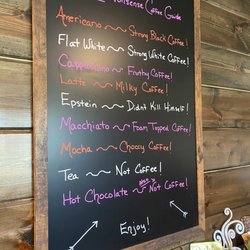 Nonsense Coffee Guide
Americano ~ Strong Black Coffee!
Flat White ~ Strong White Coffee!
Cappuccino ~ Frothy Coffee!
Latte ~ Milky Coffee!
Epstein ~ Didn't Kill Himself!
Macchiato ~ Foam Topped Coffee!
Mocha ~ Chocey Coffee!
Tea ~ Not Coffee!
Hot Chocolate ~ Not Coffee!
Enjoy!